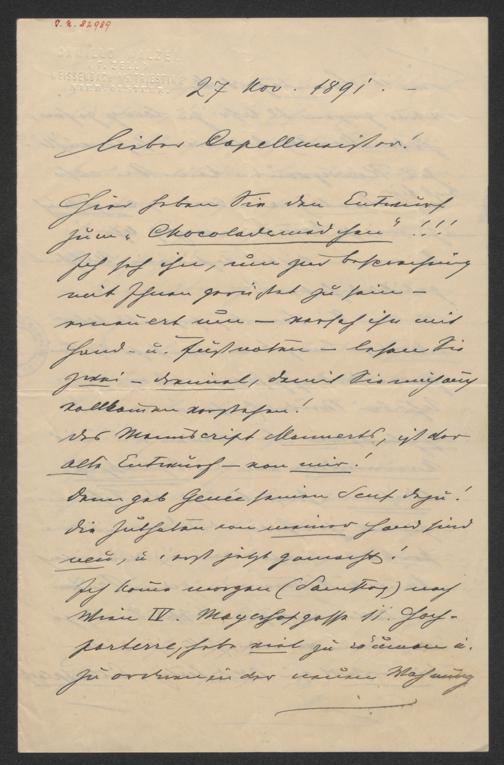 I. N. 82989
CAMILLO WALZEL
(F. ZELL)
27 Nov. 1891. –
Lieber Capellmeister!
Hier haben Sie den Entwurf
zum „Chocolademädchen“!!!
Ich sah ihn, um zur Besprechung
mit Ihnen gerüstet zu sein –
erneuert um – versah ihn mit
Hand- u. Fußnoten – lesen Sie
zwei – dreimal, damit Sie mich auch
vollkommen verstehen!
Das Manuscript Mannerts, ist der
alte Entwurf – von mir!
Dann gab Genée seinen Senf dazu!
Die Zuthaten von meiner Hand sind
neu, u. erst jetzt gemacht!
Ich komme morgen (Samstag) nach
Wien IV. Mayerhofgasse 11. Hoch-
parterre, habe viel zu räumen u.
zu ordnen in der neuen Wohnung